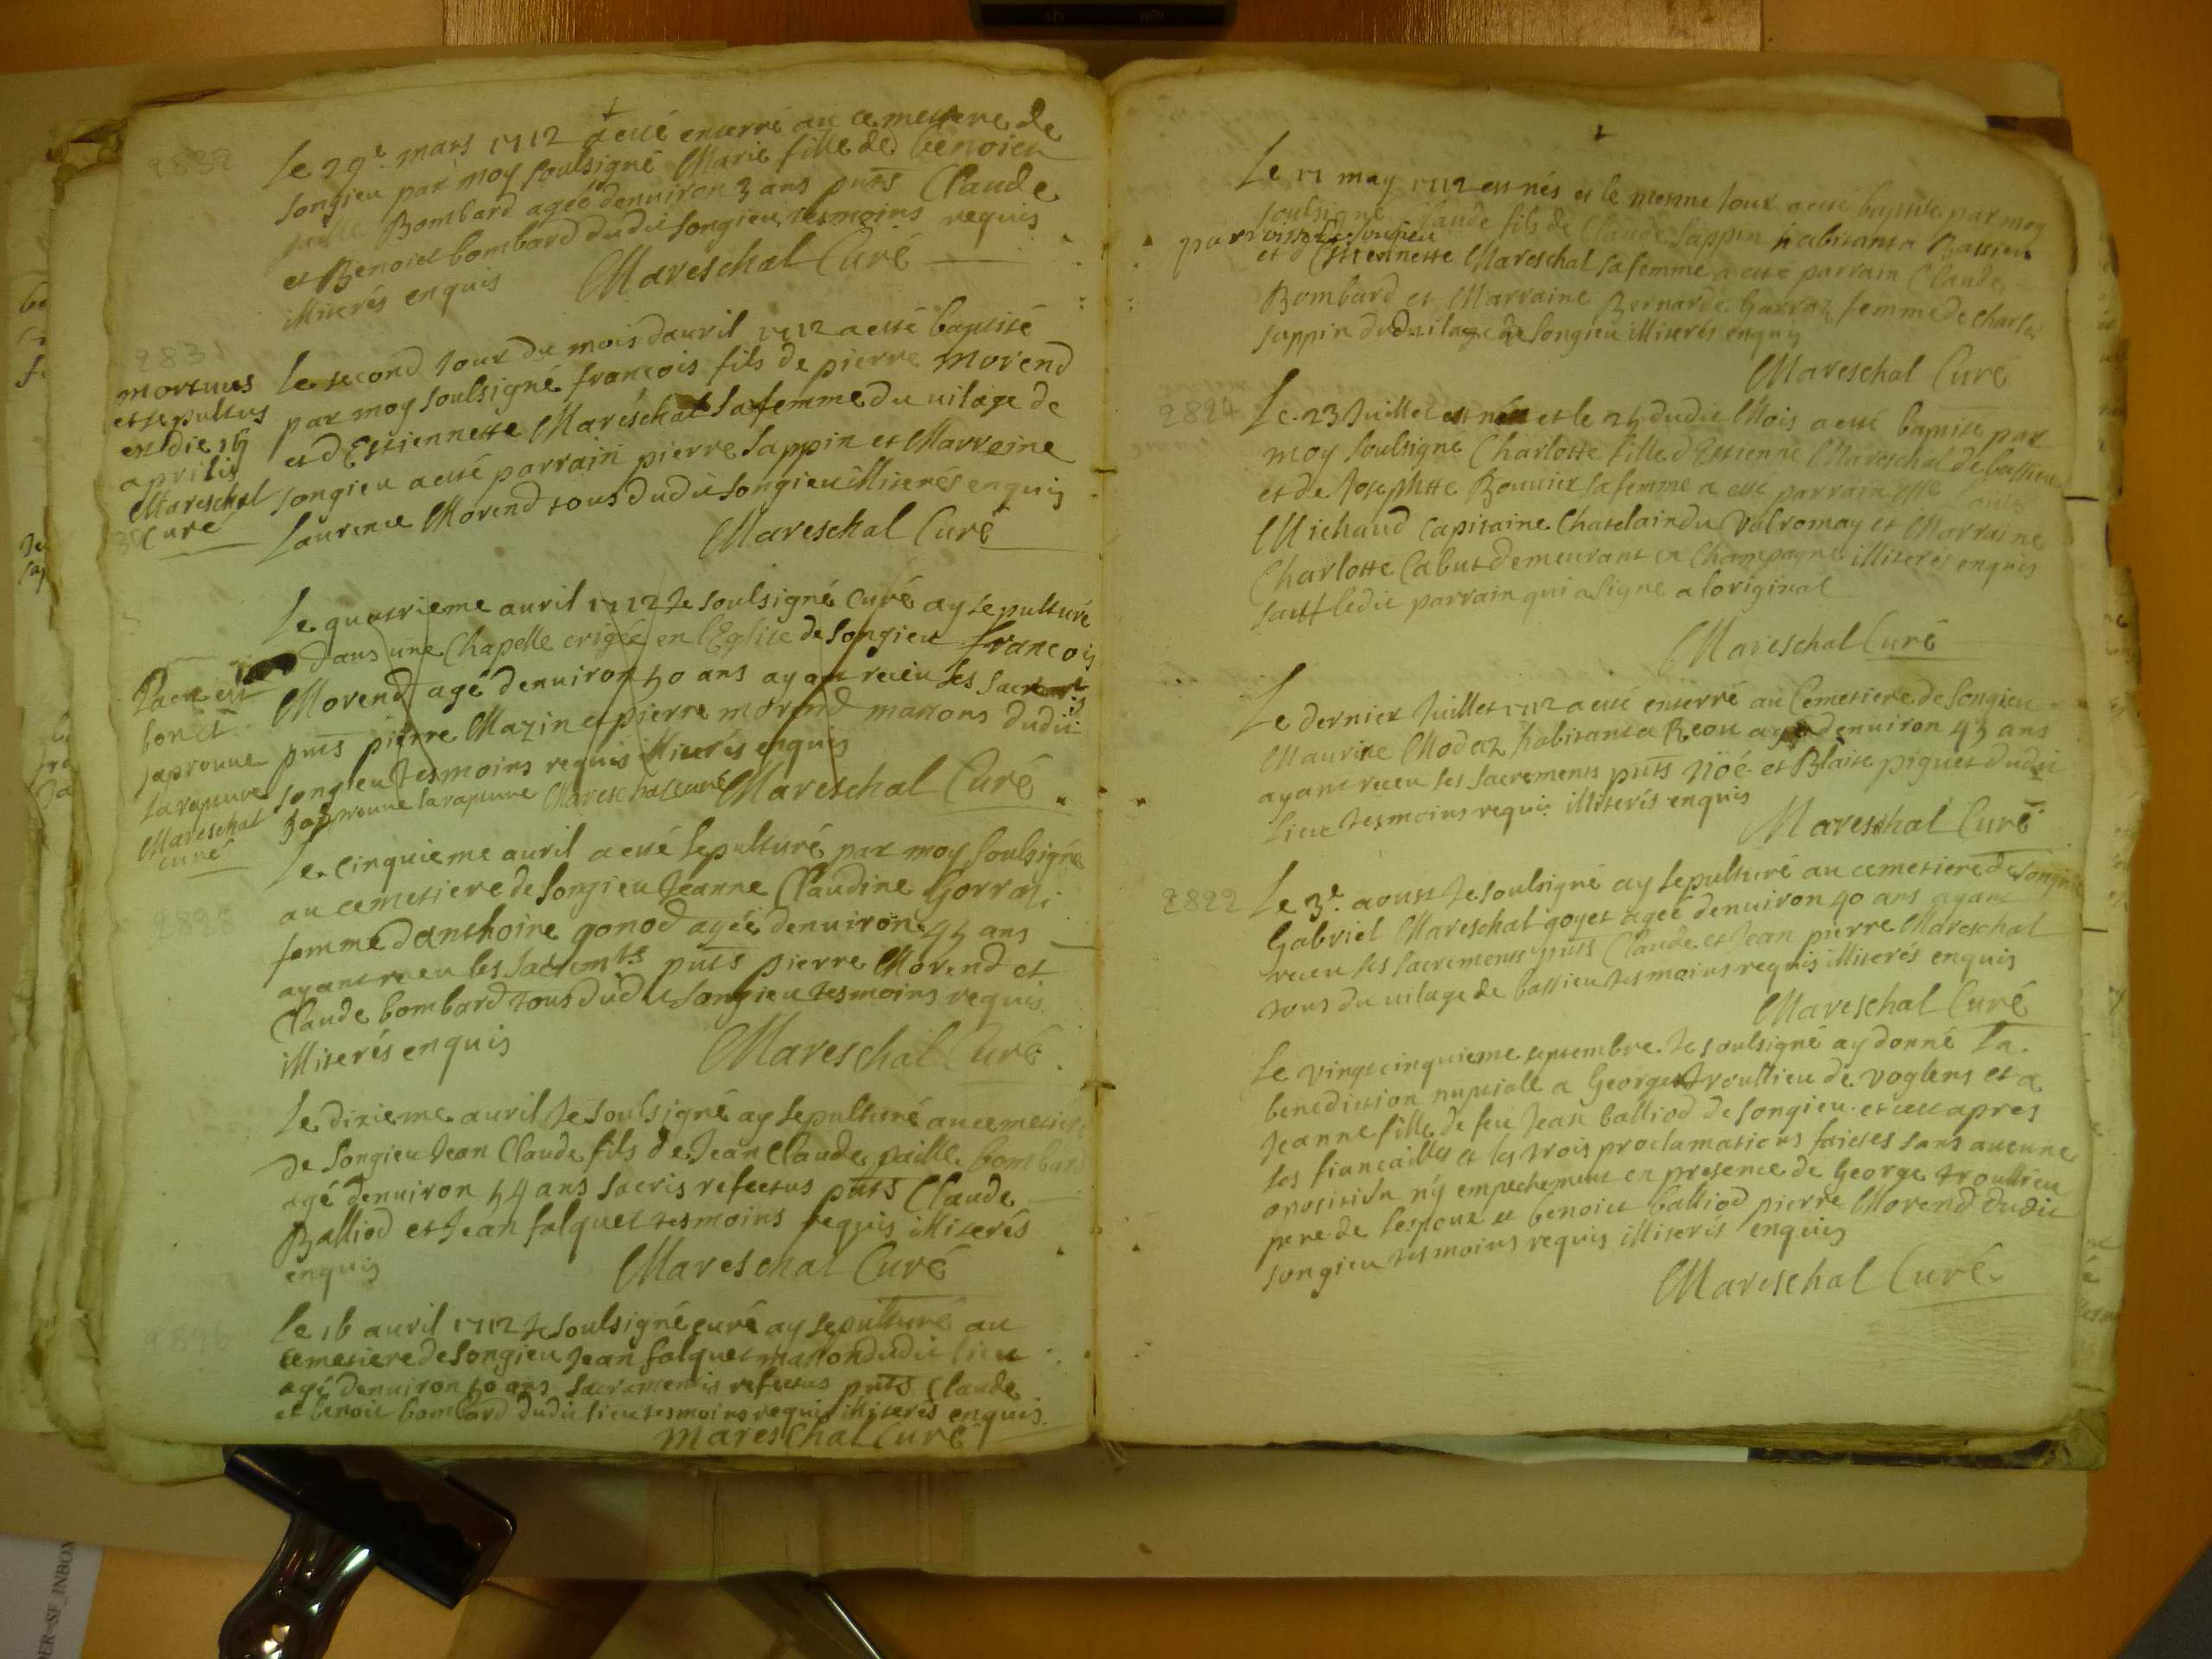 Le 29e mars 1712 a esté enterré au cemetiere de
Songieu par moy soulsigné Marie fille de benoict
paille Bombard agéé denuiron 3 ans pnts Claude
et Benoict bombard dudit Songieu tesmoins requis
illiterés enquis Mareschal Curé
2832
2831
mortuus
et sepultus
en die 16
aprilis
Mareschal
Curé
Le second jour du mois dauril 1712 a esté baptisé
par moy soulsigné francois fils de pierre Morend
et dEstiennette Mareschal sa femme du uilage de
Songieu a esté parrain pierre Sappin et Marreine
Laurence Morend tous dudit Songieu illiterés enquis
Mareschal Curé
Le quatrieme auril 1712 Je soulsigné Curé ay sepulturé
dans une Chapelle erigée en lEglise de Songieu francois
Morend agé denuiron 50 ans ayant receu les
pnts pierre Mazin et pierre morend massons dudit
Songieu tesmoins requis illiterés enquis
Japrouue la rapture Mareschal curé Mareschal Curé
Lacte est
bon et
japrouue
la rapture
Mareschal
curé
Le cinquieme auril a esté sepulturé par moy soulsigné
au cemetiere de Songieu Jeanne Claudine Gorraz
femme danthoine gonod agéé denuiron 45 ans
ayant receu les sacremts pnts pierre Morend et
Claude bombard tous dudit Songieu tesmoins requis
illiterés enquis Mareschal Curé
Le dixieme auril Je soulsigné ay sepulturé au cemetiere
de Songieu Jean Claude fils de Jean Claude paille bombard
agé denuiron 54 ans sacris refectus pnts Claude
Balliod et Jean falquet tesmoins requis illiterés
enquis Mareschal Curé
2896
Le 16 auril 1712 Je soulsigné curé ay sepulturé au
cemetiere de Songieu Jean falquet masson dudit lieu
agé denuiron 50 ans sacramentis refectus pnts Claude
et benoit bombard dudit lieu tesmoins requis illiterés enquis
Mareschal Curé
Le 17 may 1712 est nés et le mesme Jour a esté baptisé par moy
soulsigné Claude fils de Claude Sappin habitant a Bassieu
parroisse de Songieu
et dEstiennette Mareschal sa femme a esté parrain Claude
Bombard et Marraine Bernarde Gorraz femme de Charles
Sappin du uilage de Songieu illiterés enquis
Mareschal Curé
2824
Le 23 Juillet est née et le 25 dudit Mois a esté baptisé par
moy soulsigné Charlotte fille dEstienne Mareschal de bassieu
et de Josephtte Bouuier sa femme a esté parrain Mre Louis
Michaud Capitaine Chatelain du Valromay et Marraine
Charlotte Cabut demeurant en Champagne illiterés enquis
sauf ledit parrain qui a signé a loriginal
Mareschal Curé
Le dernier Juillet 1712 a esté enterré au Cemetiere de Songieu
Maurise Modaz habitant a Reou agé denuiron 45 ans
ayant receu les sacrements pnts Nöé et Blaise piguet dudit
lieu tesmoins requis illiterés enquis
Mareschal Curé
2822
Le 3e aoust Je soulsigné ay sepulturé au cemetiere de Songieu
Gabriel Mareschal goyet agéé denuiron 40 ans ayant
receu les sacrements pnts Claude et Jean pierre Mareschal
tous du uilage de bassieu tesmoins requis illiterés enquis
Mareschal Curé
Le vingtcinquieme septembre Je soulsigné ay donné la
benediction nuptiale a George troullieu de voglens et a
Jeanne fille de feu Jean balliod de Songieu et ce apres
les fiancailles et les trois proclamations faictes sans aucune
oposition n'y empechement en presence de George troullieu
pere de lespoux et benoict balliod pierre Morend dudit
Songieu tesmoins requis illiterés enquis
Mareschal Curé